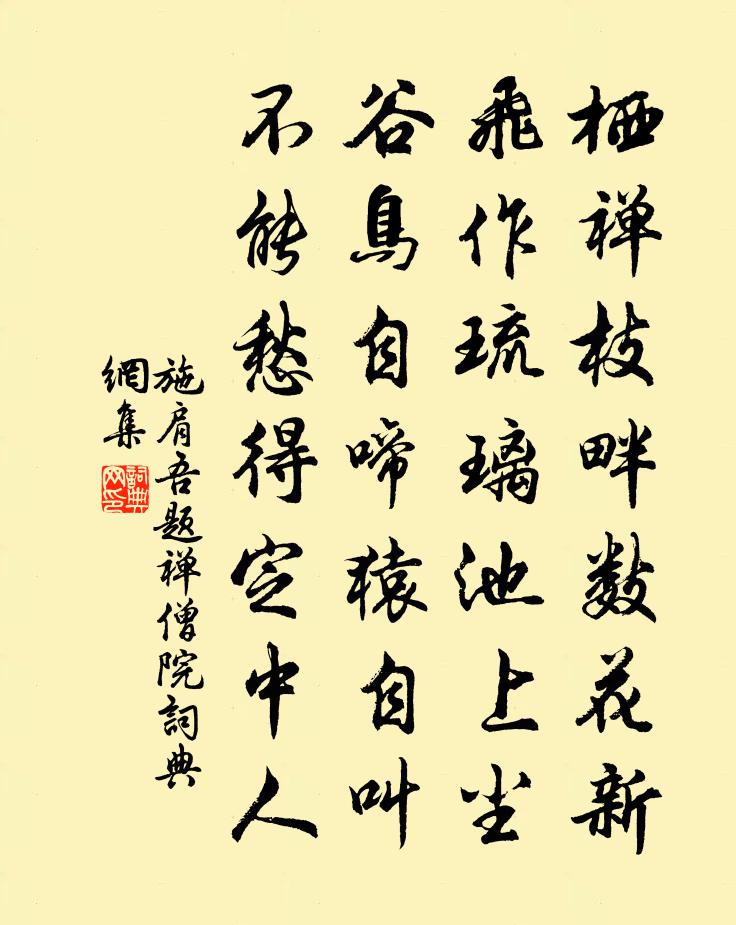 栖禅枝畔数花新
飛作琉璃池上尘
谷鳥自啼猿自叫
不能愁得定中人
施肩吾题禅僧院詞典
網集
詞典
网印